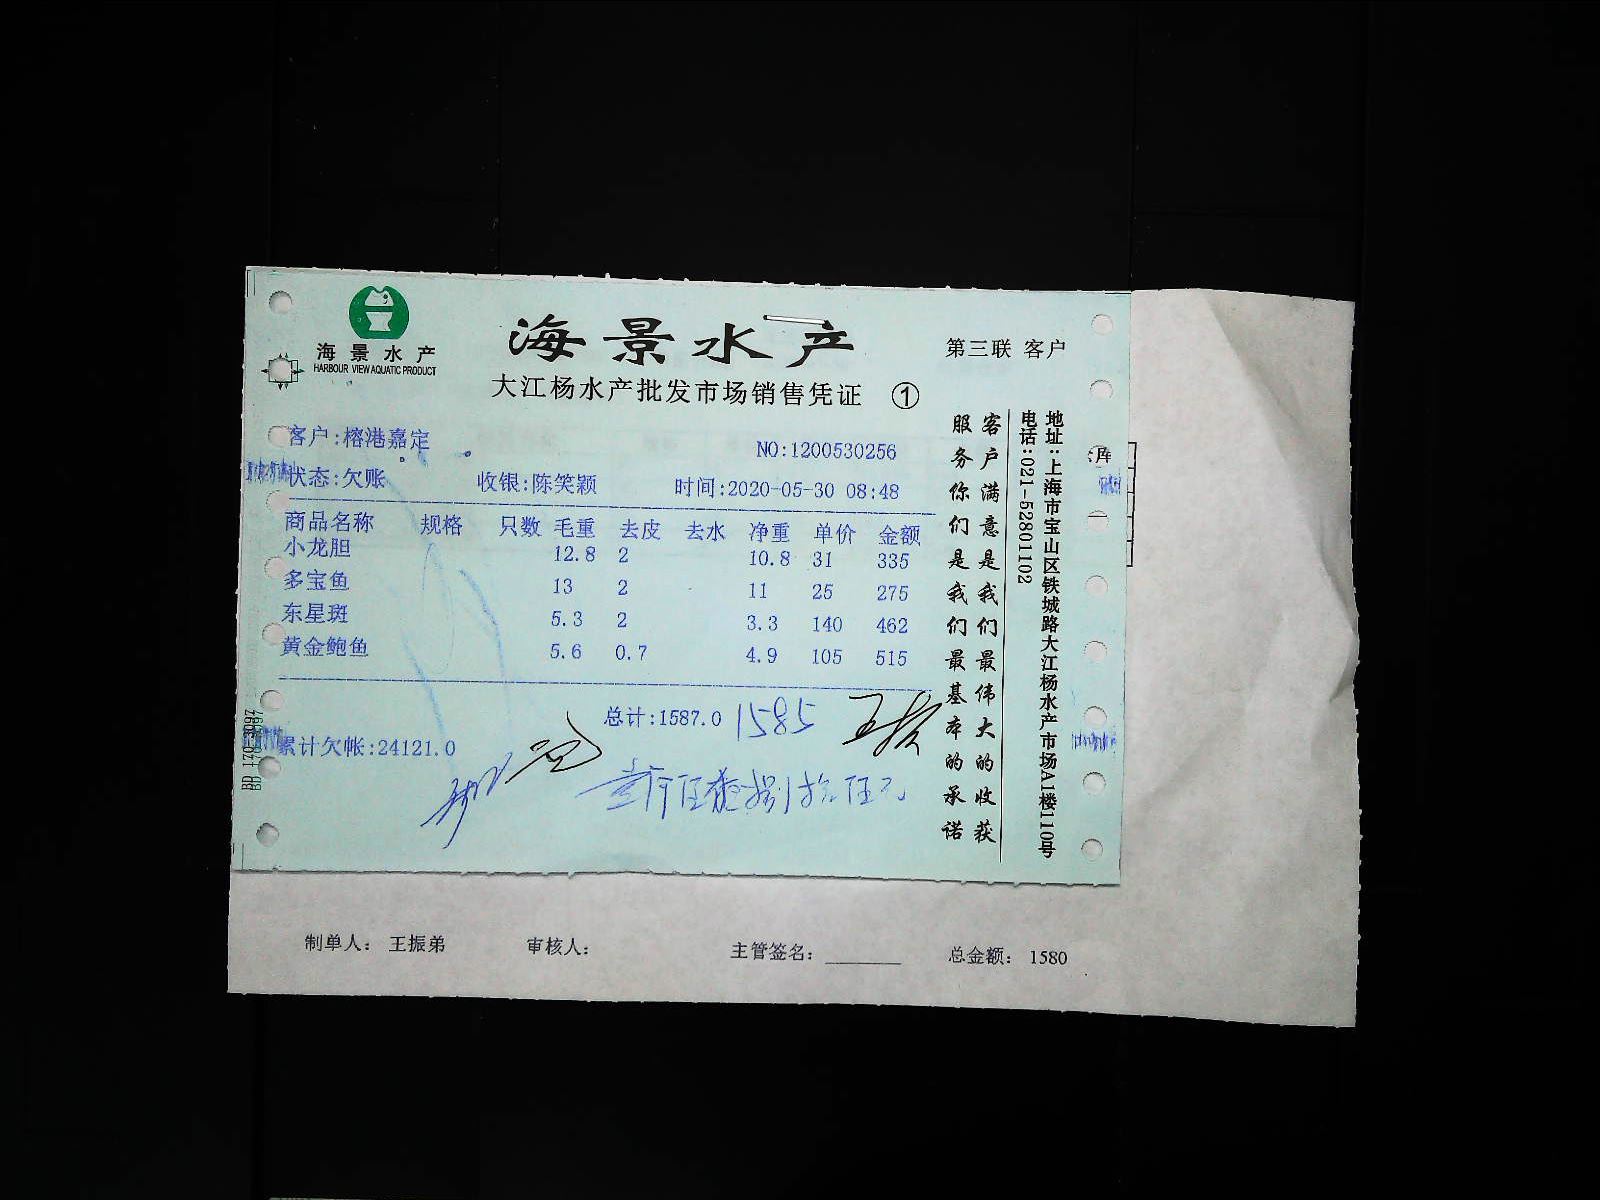 海景水产
HARBOUR VIEW AQUATIC PRODUCT
海景水产
第三联 客户
大江杨水产批发市场销售凭证 ①
客户:榕港嘉定
NO:1200530256
状态:欠账 收银:陈笑颖 时间:2020-05-30 08:48
商品名称 规格 只数 毛重 去皮 去水 净重 单价 金额
小龙胆 12.8 2 10.8 31 335
多宝鱼 13 2 11 25 275
东星斑 5.3 2 3.3 140 462
黄金鲍鱼 5.6 0.7 4.9 105 515
总计:1587.0 1585
累计欠帐:24121.0
壹仟伍佰捌拾伍元
客户满意是我们最伟大的收获
服务你们是我们最基本的承诺
地址:上海市宝山区铁城路大江杨水产市场A1楼110号
电话:021-52801102
库
制单人: 王振弟 审核人: 主管签名: 总金额: 1580